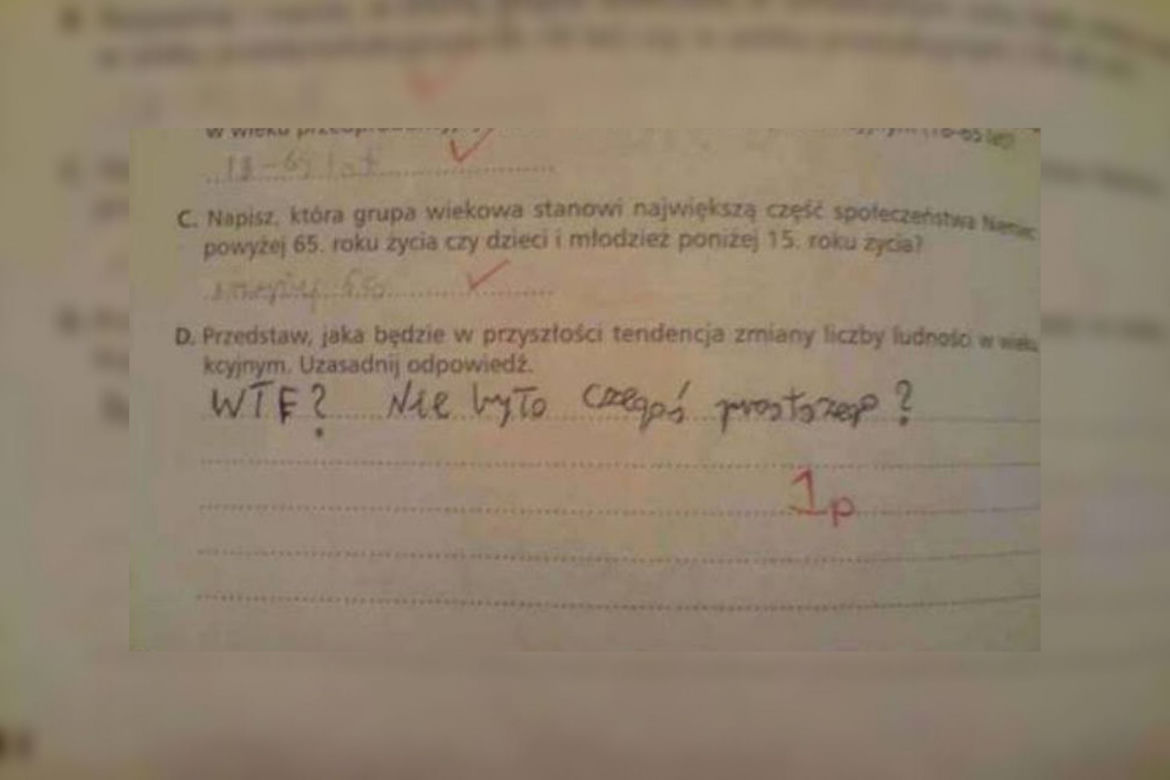 18-65 lat
C. Napisz, która grupa wiekowa stanowi największą część społeczeństwa Niemiec
powyżej 65. roku życia czy dzieci i młodzież poniżej 15. roku życia?
D. Przedstaw, jaka będzie w przyszłości tendencja zmiany liczby ludności w wieku
kcyjnym. Uzasadnij odpowiedź.
WTF? Nie było czegoś prostszego?
1p